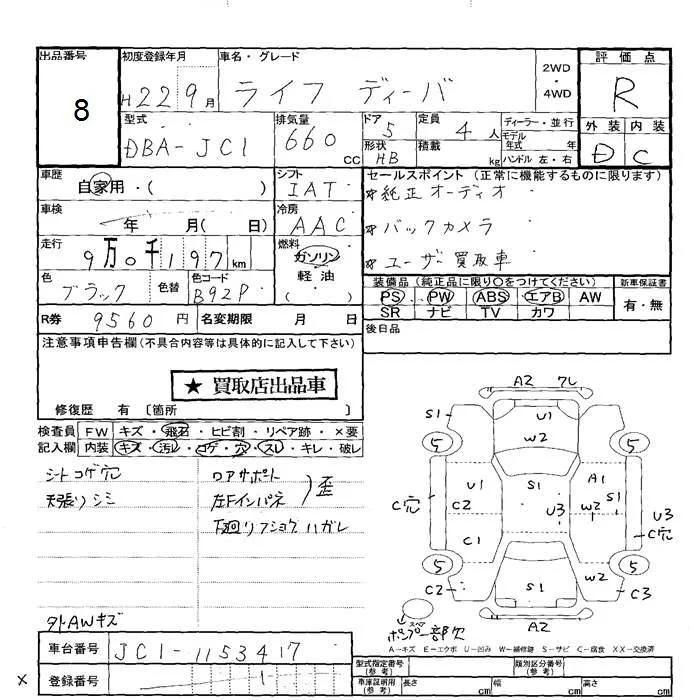 出品番号
8
初度登録年月
H22年9月
車名・グレード
ライフ ディーバ
2WD
・
4WD
評価点
R
外装 内装
D C
型式
DBA-JC1
排気量
660 CC
ドア
5
形状
HB
定員
4人
積載
kg
ディーラー・並行
モデル
年式 年
ハンドル 左・右
車歴
自家用・( )
シフト
IAT
車検
年 月( 日)
冷房
AAC
走行
9万0千197km
燃料
ガソリン
軽油
( )
色
ブラック
色替
色コード
B92P
R券 9560円
名変期限 月 日
セールスポイント (正常に機能するものに限ります)
*純正オーディオ
*バックカメラ
*ユーザー買取車
装備品 (純正品に限り○をつけてください)
PS PW ABS エアB AW
SR ナビ TV カワ
新車保証書
有・無
後日品
注意事項申告欄(不具合内容等は具体的に記入して下さい)
★ 買取店出品車
修復歴 有 〔箇所 〕
検査員
記入欄
FW キズ・飛石・ヒビ割・リペア跡・×要
内装 キズ・汚レ・コゲ・穴・スレ・キレ・破レ
シートコゲ穴
天張りシミ
ロアサポート
左Fインパネ
歪
下廻りフショクハガレ
外AWキズ
A2 フレ
S1 U1
W2
5 5
U1 S1 A1
S1
C穴 C2 U3 W2
U3
C穴
C1
5 5
C2 S1 W2 C3
A2
スペ
ボンプー部欠
A-キズ E-エクボ U-凹み W-補修跡 S-サビ C-腐食 XX-交換済
車台番号
JC1-1153417
× 登録番号
型式指定番号
(参考)
類別区分番号
(参考)
車庫証明用
(参考)
長さ cm
幅 cm
高さ cm